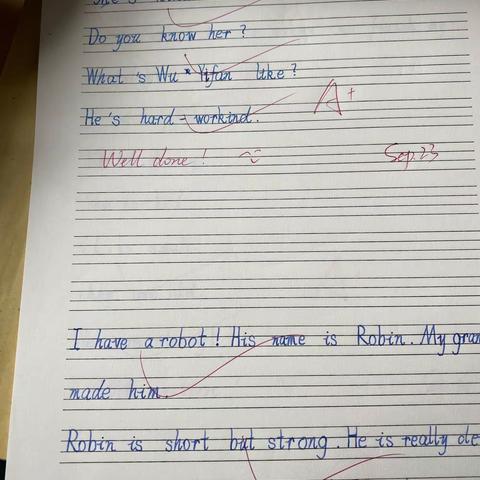 Do you know her?
What's Wu Yifan like?
A+
He's hard-workind.
Well done!
Sep.23
I have a robot! His name is Robin. My gran
made him.
Robin is short but strong. He is really de